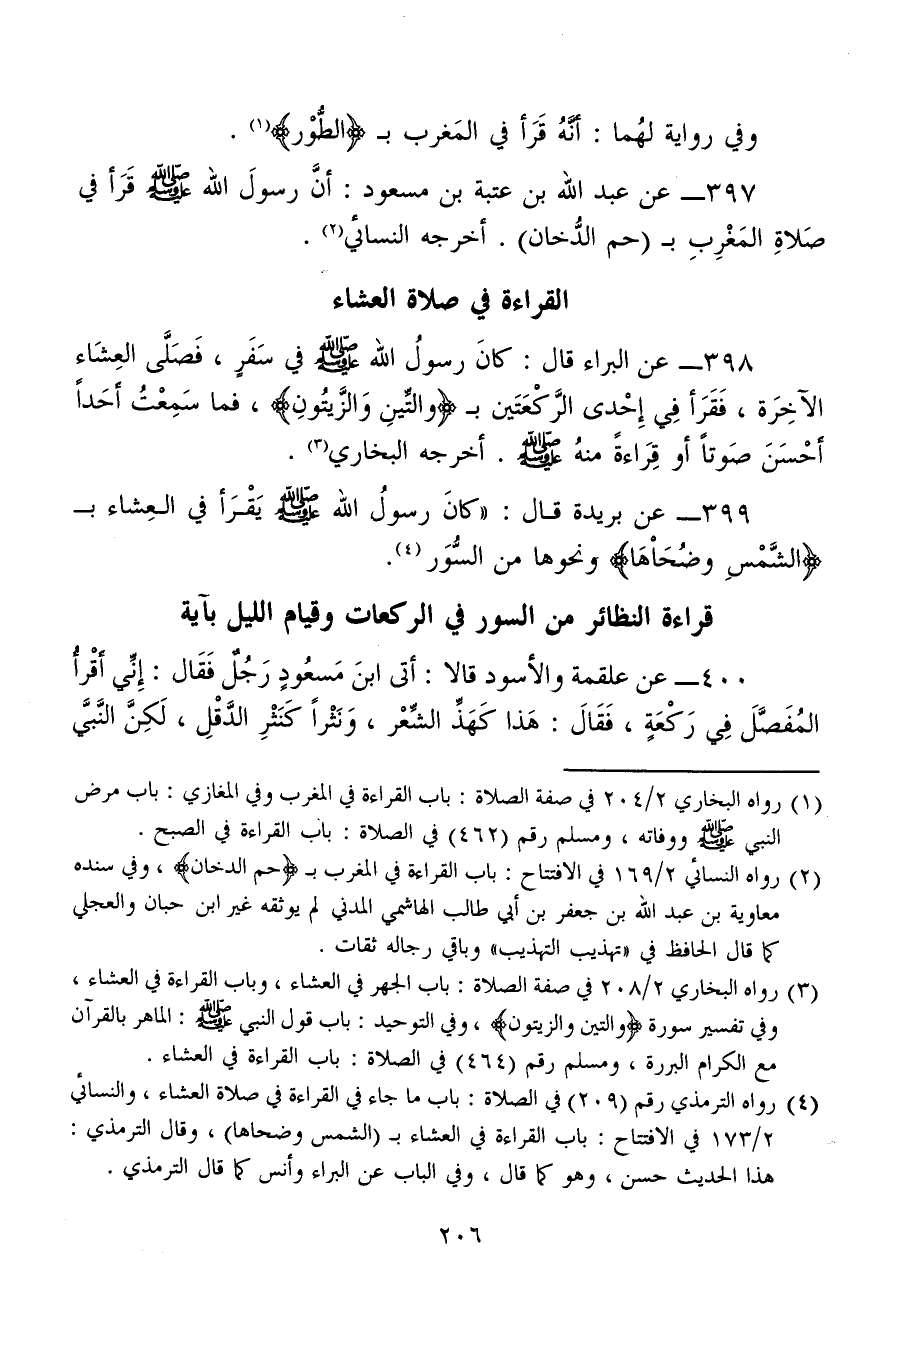 وفي رواية لهُما : أنَّهُ قَرَأ في المَغرب بـ ﴿الطُّوْر﴾(١) .
٣٩٧ـــ عن عبد الله بن عتبة بن مسعود : أنَّ رسولَ الله ﷺ قَرَأ في
صَلاةِ المَغْرِبِ بـ (حم الدُّخان) . أخرجه النسائي(٢) .
القراءة في صلاة العشاء
٣٩٨ـــ عن البراء قال : كانَ رسولُ الله ﷺ في سَفَرٍ ، فَصَلَّى العِشَاء
الآخِرَة ، فَقَرَأ فِي إحْدى الرَّكْعَتَين بـ ﴿والتِّينِ وَالزَّيتُونِ﴾ ، فما سَمِعْتُ أحَداً
أحْسَنَ صَوتاً أو قِرَاءةً منهُ ﷺ . أخرجه البخاري(٣) .
٣٩٩ـــ عن بريدة قـال : «كانَ رسولُ الله ﷺ يَقْـرَأ في العِشاء بـ
﴿الشَّمْسِ وضُحَاْهَا﴾ ونحوها من السُّوَر (٤).
قراءة النظائر من السور في الركعات وقيام الليل بآية
٤٠٠ـــ عن علقمة والأسود قالا : أتى ابنَ مَسعُودٍ رَجُلٌ فَقَال : إنِّي أقْرأُ
المُفَصَّلَ فِي رَكْعَةٍ ، فَقَالَ : هَذا كَهَذِّ الشِّعْر ، وَنَثْراً كَنَثْرِ الدَّقْلِ ، لَكِنَّ النَّبيَّ
(١) رواه البخاري ٢٠٤/٢ في صفة الصلاة : باب القراءة في المغرب وفي المغازي : باب مرض
النبي ﷺ ووفاته ، ومسلم رقم (٤٦٢) في الصلاة : باب القراءة في الصبح .
(٢) رواه النسائي ١٦٩/٢ في الافتتاح : باب القراءة في المغرب بـ ﴿حم الدخان﴾ ، وفي سنده
معاوية بن عبد الله بن جعفر بن أبي طالب الهاشمي المدني لم يوثقه غير ابن حبان والعجلي
كما قال الحافظ في «تهذيب التهذيب» وباقي رجاله ثقات .
(٣) رواه البخاري ٢٠٨/٢ في صفة الصلاة : باب الجهر في العشاء ، وباب القراءة في العشاء ،
وفي تفسير سورة ﴿والتين والزيتون﴾ ، وفي التوحيد : باب قول النبي ﷺ : الماهر بالقرآن
مع الكرام البررة ، ومسلم رقم (٤٦٤) في الصلاة : باب القراءة في العشاء .
(٤) رواه الترمذي رقم (٢٠٩) في الصلاة : باب ما جاء في القراءة في صلاة العشاء ، والنسائي
١٧٣/٢ في الافتتاح : باب القراءة في العشاء بـ (الشمس وضحاها) ، وقال الترمذي :
هذا الحديث حسن ، وهو كما قال ، وفي الباب عن البراء وأنس كما قال الترمذي .
٢٠٦